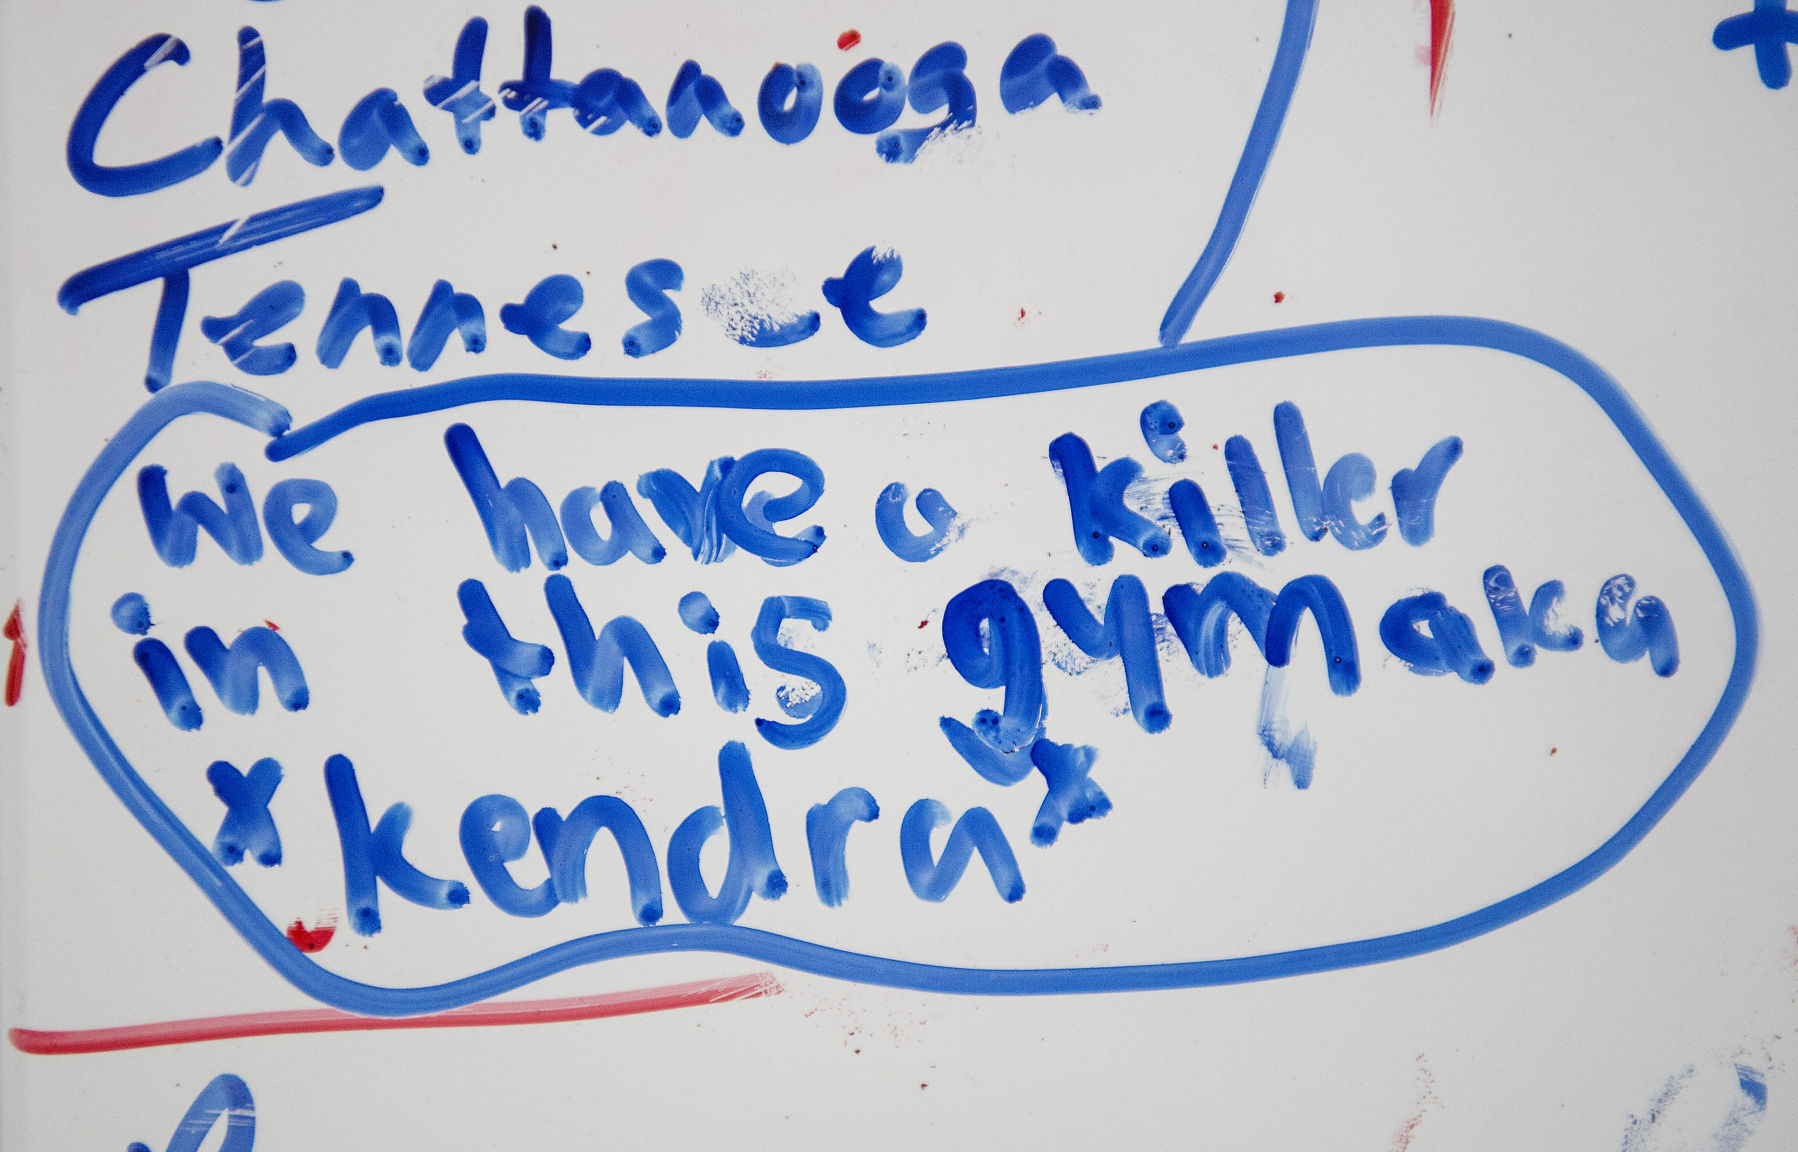 Chattanooga
Tennessee
We have a killer
in this gym aka
*kendra*